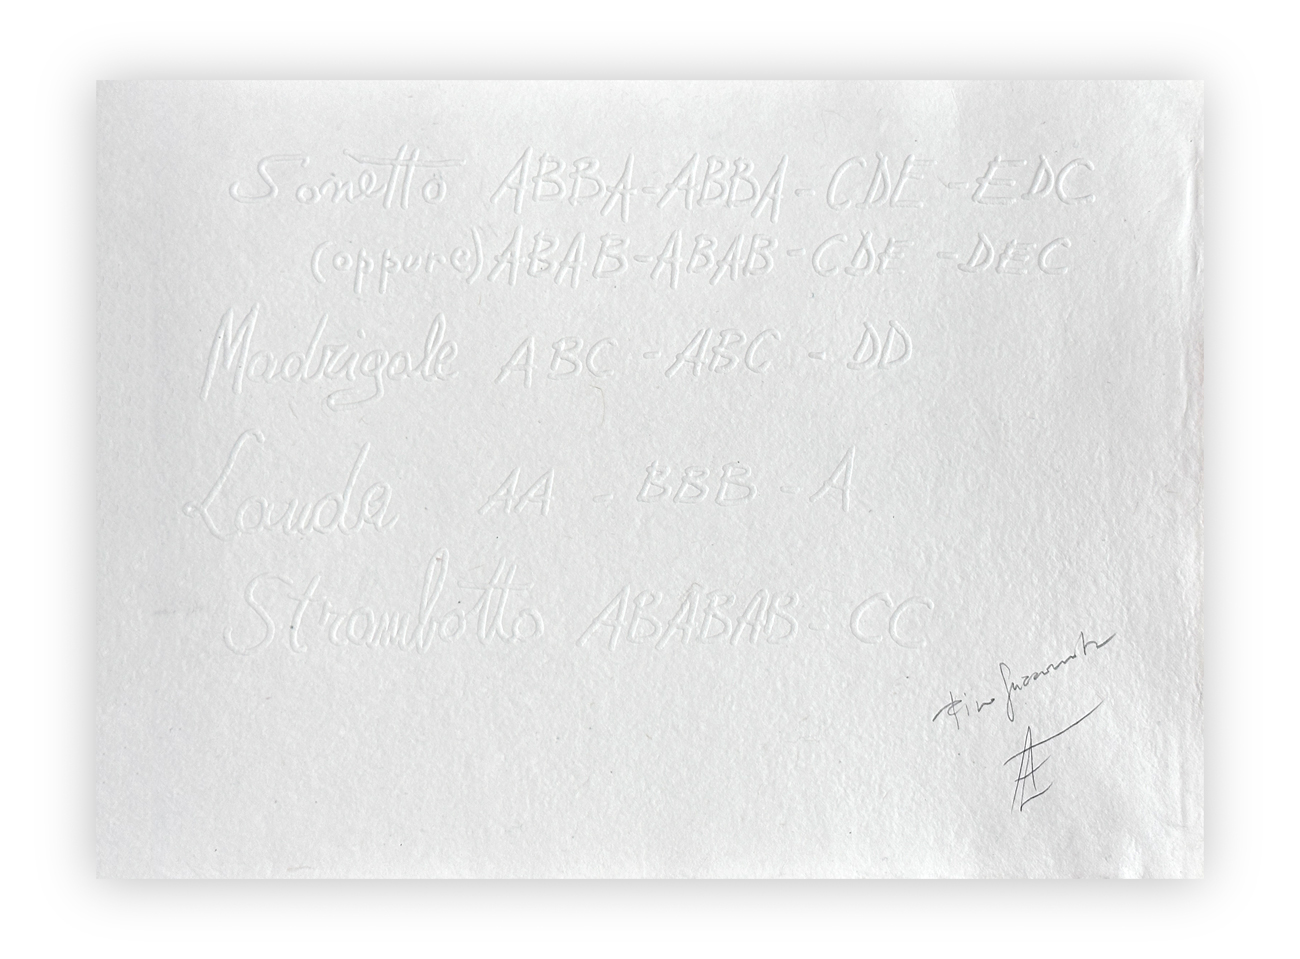 Sonetto ABBA-ABBA-CDE-EDC
(oppure) ABAB-ABAB-CDE-DEC
Madrigale ABC-ABC-DD
Lauda AA-BBB-A
Strambotto ABABAB-CC